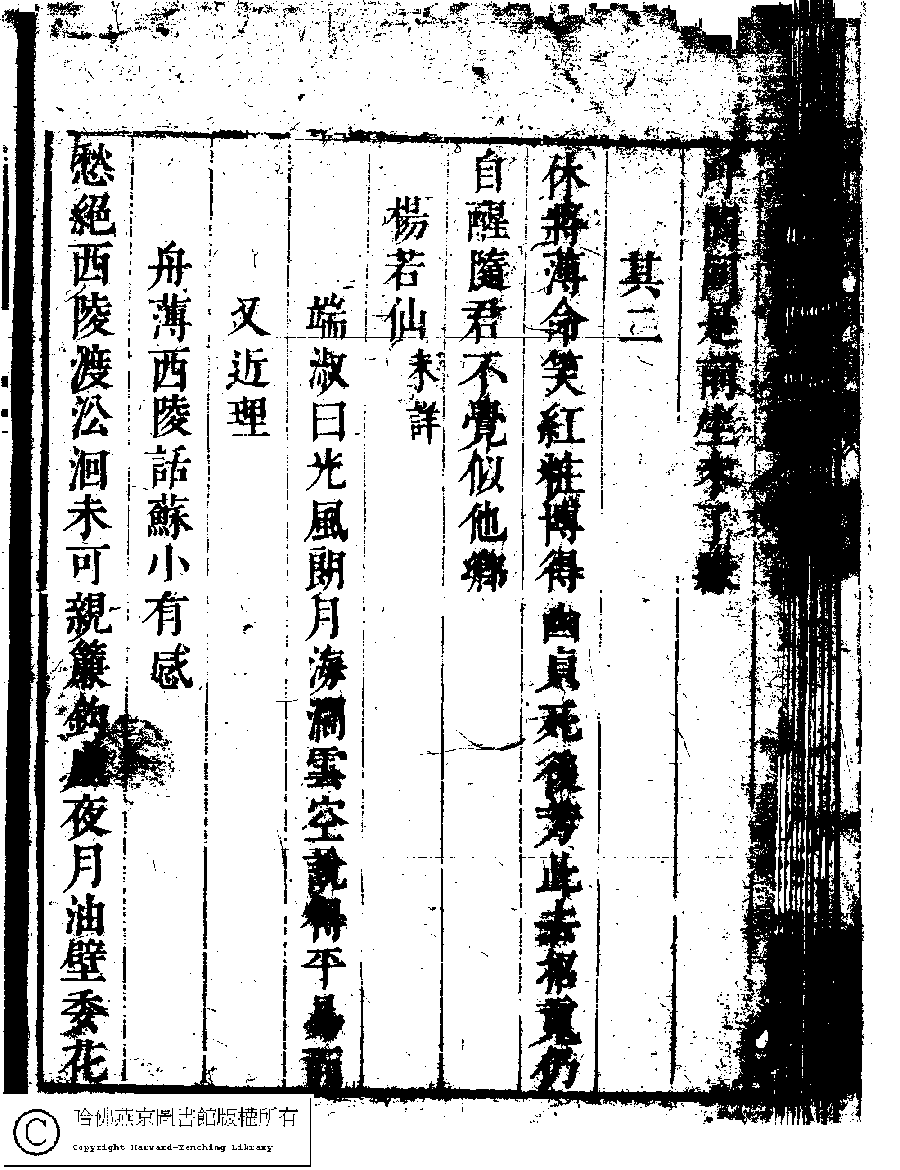 是前生未了緣
其二
休將薄命笑紅粧博得幽貞死後芳此去招䰟仍
自醒隨君不覺似他鄉
楊若仙未詳
端淑曰光風朗月海濶雲空說得平易而
又近理
舟薄西陵話蘇小有感
愁絕西陵渡㳂洄未可親簾鉤夜月油壁委花
哈佛燕京圖書館版權所有
Copyright Harvard-Yenching Library